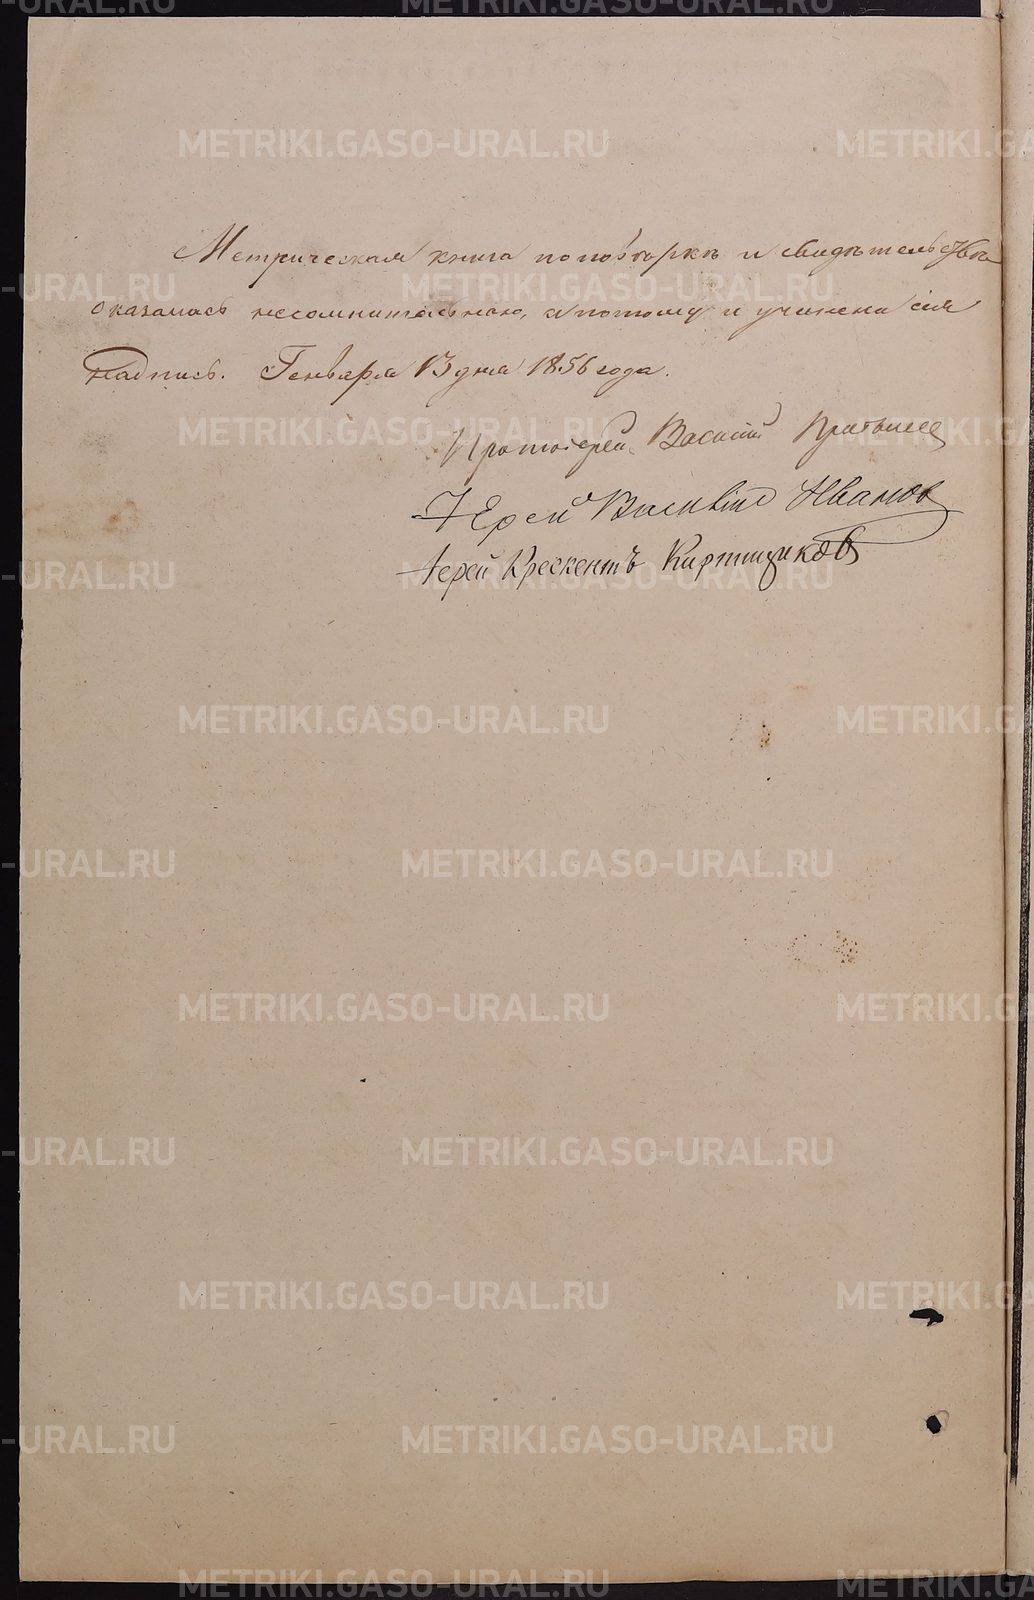 Метрическая книга по повѣркѣ и свидѣтельству
оказалась несомнительною, а потому и учинена сія
надпись. Генваря 13 дня 1856 года.
Протоіерей Василій
Іерей Василій Ивановъ
Іерей Крескентъ Киртищиковъ
METRIKI.GASO-URAL.RU